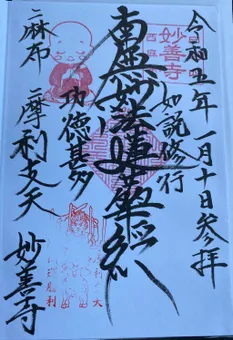 令和五年 一月十日参拝
如説修行
南無妙法蓮華経
功徳甚多
麻布 摩利支天 妙善寺
妙善寺